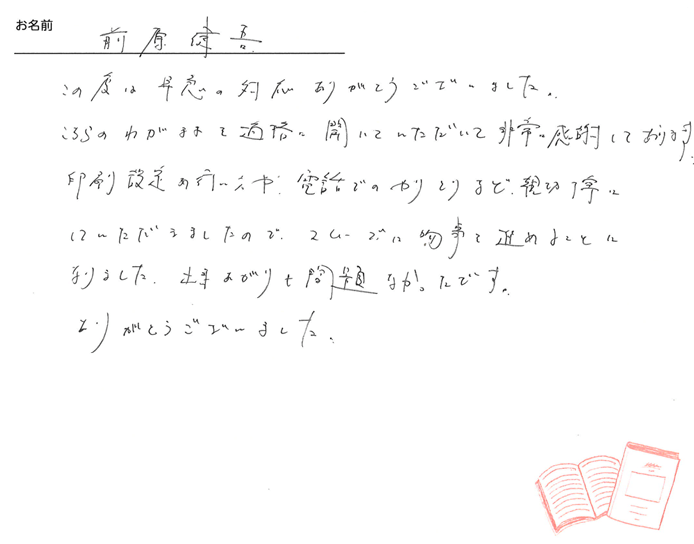 お名前
前原 健吾
この度は早急の対応ありがとうございました。
こちらのわがままを適格に聞いていただいて非常に感謝しております。
印刷設定の行い方や、電話でのやりとりなど、親切丁寧に
していただきましたので、スムーズに物事を進めることに
なりました。出来あがりも問題なかったです。
ありがとうございました。